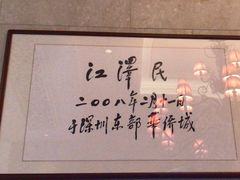 江澤民
二〇〇八年二月十一日
于深圳东部华侨城